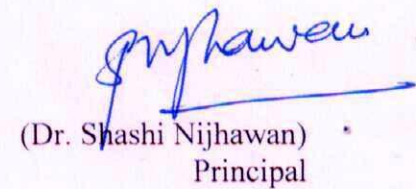 SNijhawan
(Dr. Shashi Nijhawan)
Principal